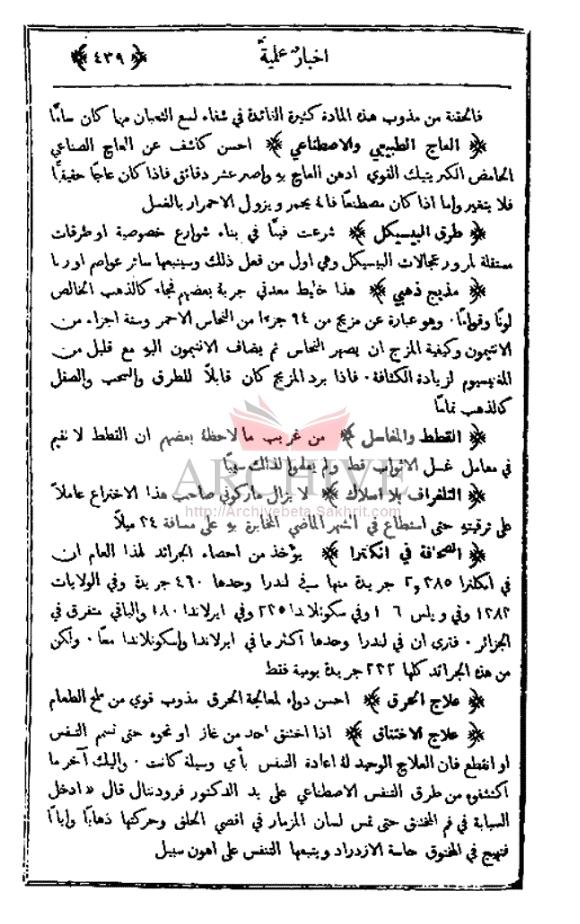 اخبار علمية ﴿٤٣٩﴾
فالحقنة من مذوب هذه المادة كثيرة الفائدة في شفاء لسع الثعبان مهما كان سامًّا
﴿ العاج الطبيعي والاصطناعي ﴾ احسن كاشف عن العاج الصناعي
الحامض الكبريتيك القوي ادهن العاج به واصبر عشر دقائق فاذا كان عاجًا حقيقيًّا
فلا يتغير واما اذا كان مصطنعًا فانه يحمر ويزول الاحمرار بالغسل
﴿ طرق البيسيكل ﴾ شرعت فينَّا في بناء شوارع خصوصية او طرقات
مستقلة لمرور عجلات البيسيكل وهي اول من فعل ذلك وسيتبعها سائر عواصم اوربا
﴿ مذيج ذهبي ﴾ هذا خليط معدني جربهُ بعضهم فجاء كالذهب الخالص
لونًا وقوامًا . وهو عبارة عن مزيج من ٩٤ جزءا من النحاس الاحمر وستة اجزاء من
الانتيمون وكيفية المزج ان يصهر النحاس ثم يضاف الانتيمون اليهِ مع قليل من
المغنيسيوم لزيادة الكثافة . فاذا برد المزيج كان قابلاً للطرق والسحب والصقل
كالذهب تمامًا
﴿ القطط والمغاسل ﴾ من غريب ما لاحظهُ بعضهم ان القطط لا تقيم
في معامل غسل الاثواب قط ولم يعلموا لذلك سببًا
﴿ التلغراف بلا اسلاك ﴾ لا يزال ماركوني صاحب هذا الاختراع عاملاً
على ترقيتهِ حتى استطاع في الشهر الماضي المخابرة بهِ على مسافة ٣٤ ميلاً
﴿ الصحافة في انكلترا ﴾ يؤخذ من احصاء الجرائد لهذا العام ان
في انكلترا ٢,٣٨٥ جريدة منها في لندرا وحدها ٤٦٠ جريدة وفي الولايات
١٣٨٢ وفي ويلس ١٠٦ وفي سكوتلاندا ٢٣٥ وفي ايرلاندا ١٨٠ والباقي متفرق في
الجزائر . فترى ان في لندرا وحدها اكثر ما في ايرلاندا واسكوتلاندا معًا . ولكن
من هذه الجرائد كلها ٢٣٢ جريدة يومية فقط
﴿ علاج الحرق ﴾ احسن دواء لمعالجة الحرق مذوب قوي من ملح الطعام
﴿ علاج الاختناق ﴾ اذا اختنق احد من غاز او نحوه حتى تسمم التنفس
او انقطع فان العلاج الوحيد لهُ اعادة التنفس بأي وسيلة كانت . واليك آخر ما
اكتشفوه من طرق التنفس الاصطناعي على يد الدكتور فرودنتال قال « ادخل
السبابة في فم المختنق حتى تمس لسان المزمار في اقصى الحلق وحركها ذهابًا وايابًا
فتهيج في المخنوق حاسة الازدراد ويتبعها التنفس على اهون سبيل
ARCHIVE
http://Archivebeta.Sakhrit.com